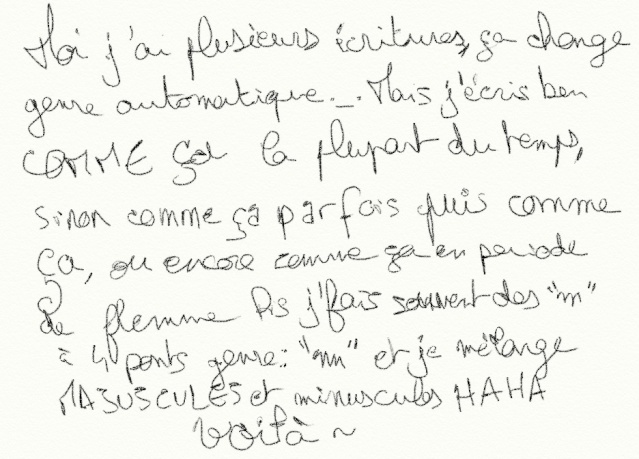 Moi j'ai plusieurs écritures, ça change
genre automatique._. Mais j'écris ben
COMME ça la plupart du temps,
sinon comme ça parfois puis comme
ça, ou encore comme ça en période
de flemme Pis j'fais souvent des "m"
à 4 ponts genre: "mn" et je mélange
MAJUSCULES et minuscules HAHA
Voilà ~